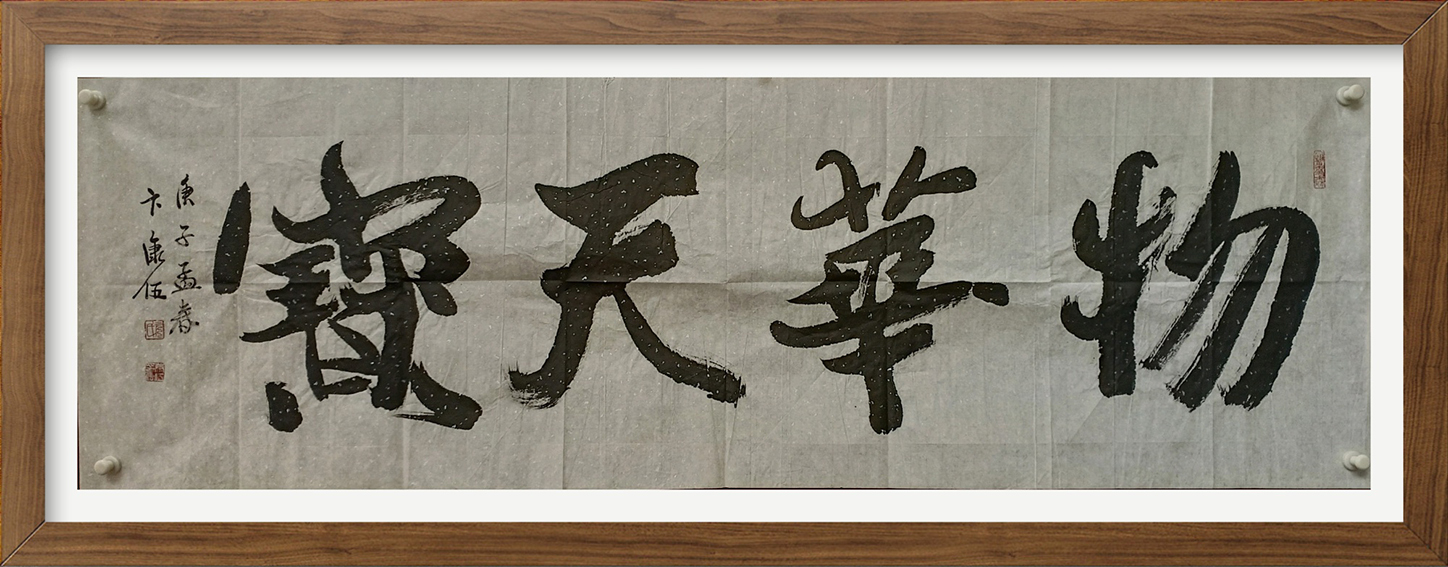 物華天寶
庚子孟春
卞康伍